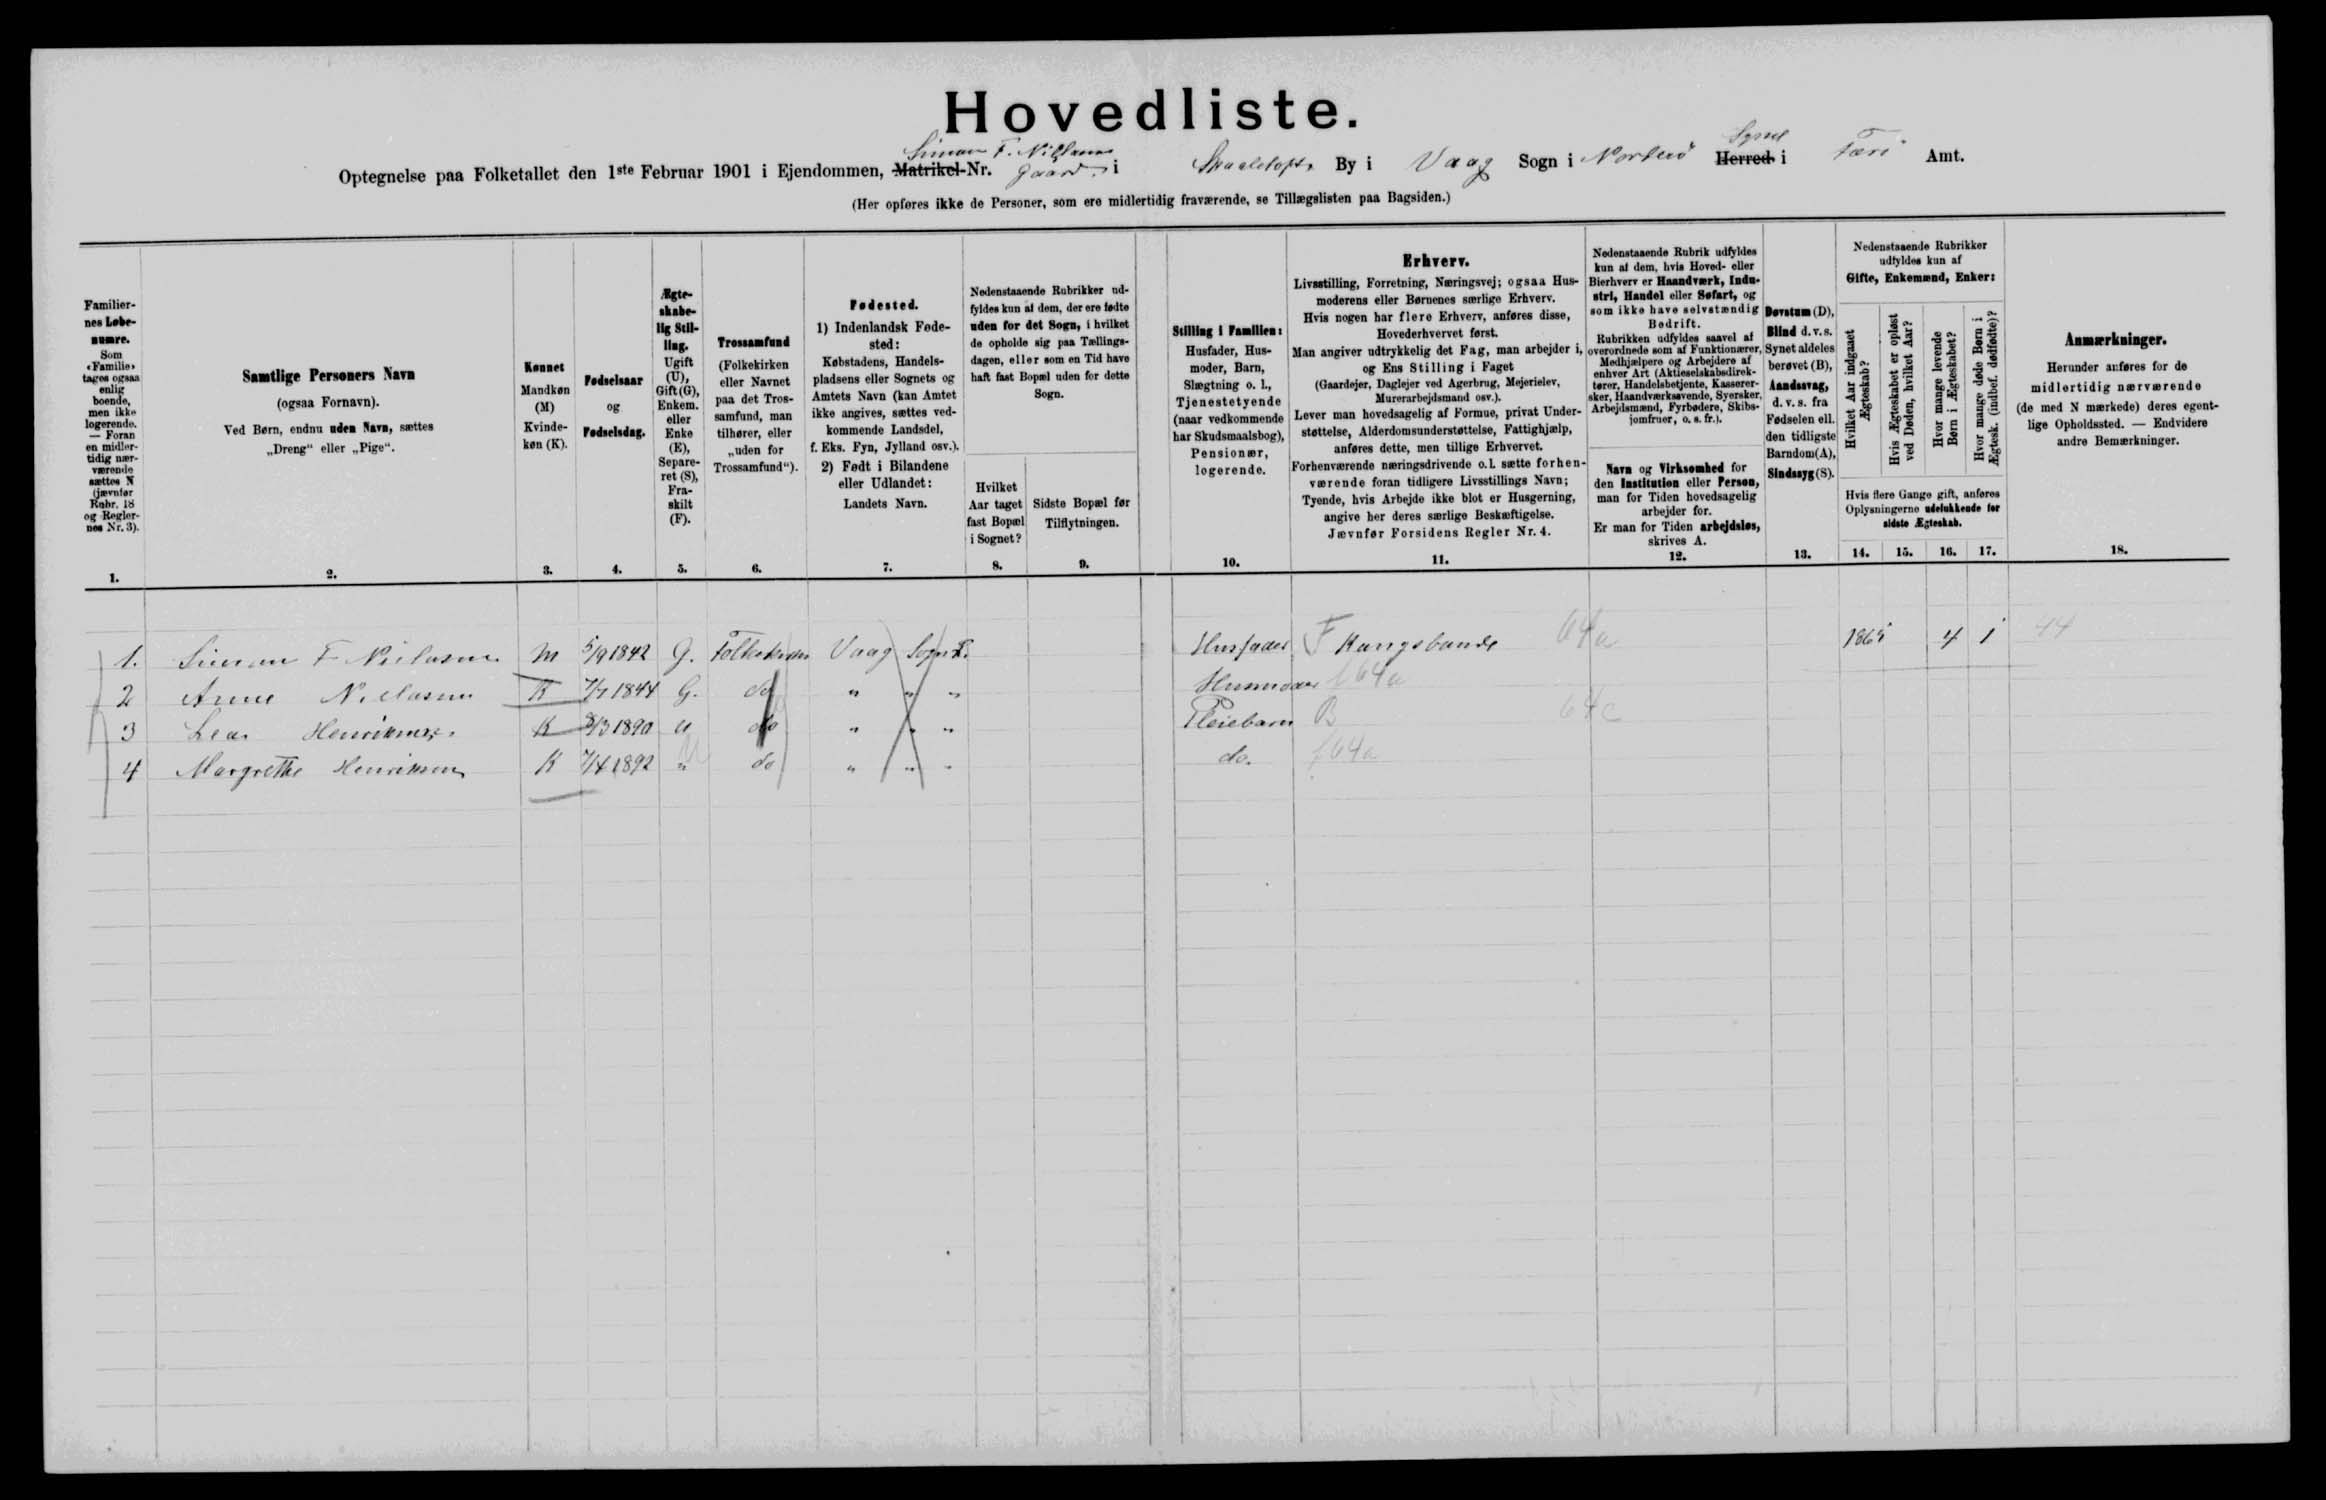 Hovedliste.
Simon F. Nielsen Syssel
Optegnelse paa Folketallet den 1ste Februar 1901 i Ejendommen, Matrikel-Nr. Gaard i By i Vaag Sogn i Norderö Herred i Færö Amt.
(Her opføres ikke de Personer, som ere midlertidig fraværende, se Tillægslisten paa Bagsiden.)
Familier-
nes Løbe-
numre.
Som
«Familie»
tages ogsaa
enlig
boende,
men ikke
logerende.
— Foran
en midler-
tidig nær-
værende
sættes N
(jævnfør
Rubr. 18
og Regler-
nes Nr. 3).
1.
Samtlige Personers Navn
(ogsaa Fornavn).
Ved Børn, endnu uden Navn, sættes
„Dreng“ eller „Pige“.
2.
Kønnet
Mandkøn
(M)
Kvinde-
køn (K).
3.
Fødselsaar
og
Fødselsdag.
4.
Ægte-
skabe-
lig Stil-
ling.
Ugift
(U),
Gift (G),
Enkem.
eller
Enke
(E),
Separe-
ret (S),
Fra-
skilt
(F).
5.
Trossamfund
(Folkekirken
eller Navnet
paa det Tros-
samfund, man
tilhører, eller
„uden for
Trossamfund“).
6.
Fødested.
1) Indenlandsk Føde-
sted:
Købstadens, Handels-
pladsens eller Sognets og
Amtets Navn (kan Amtet
ikke angives, sættes ved-
kommende Landsdel,
f. Eks. Fyn, Jylland osv.).
2) Født i Bilandene
eller Udlandet:
Landets Navn.
7.
Nedenstaaende Rubrikker ud-
fyldes kun af dem, der ere fødte
uden for det Sogn, i hvilket
de opholde sig paa Tællings-
dagen, eller som en Tid have
haft fast Bopæl uden for dette
Sogn.
Hvilket
Aar taget
fast Bopæl
i Sognet?
8.
Sidste Bopæl før
Tilflytningen.
9.
Stilling i Familien:
Husfader, Hus-
moder, Barn,
Slægtning o. l.,
Tjenestetyende
(naar vedkommende
har Skudsmaalsbog),
Pensionær,
logerende.
10.
Erhverv.
Livsstilling, Forretning, Næringsvej; ogsaa Hus-
moderens eller Børnenes særlige Erhverv.
Hvis nogen har flere Erhverv, anføres disse,
Hovederhvervet først.
Man angiver udtrykkelig det Fag, man arbejder i,
og Ens Stilling i Faget
(Gaardejer, Daglejer ved Agerbrug, Mejerielev,
Murerarbejdsmand osv.).
Lever man hovedsagelig af Formue, privat Under-
støttelse, Alderdomsunderstøttelse, Fattighjælp,
anføres dette, men tillige Erhvervet.
Forhenværende næringsdrivende o. l. sætte forhen-
værende foran tidligere Livsstillings Navn;
Tyende, hvis Arbejde ikke blot er Husgerning,
angive her deres særlige Beskæftigelse.
Jævnfør Forsidens Regler Nr. 4.
11.
Nedenstaaende Rubrik udfyldes
kun af dem, hvis Hoved- eller
Bierhverv er Haandværk, Indu-
stri, Handel eller Søfart, og
som ikke have selvstændig
Bedrift.
Rubrikken udfyldes saavel af
overordnede som af Funktionærer,
Medhjælpere og Arbejdere af
enhver Art (Aktieselskabsdirek-
tører, Handelsbetjente, Kasserer-
sker, Haandværkssvende, Syersker,
Arbejdsmænd, Fyrbødere, Skibs-
jomfruer, o. s. fr.).
Navn og Virksomhed for
den Institution eller Person,
man for Tiden hovedsagelig
arbejder for.
Er man for Tiden arbejdsløs,
skrives A.
12.
Døvstum (D),
Blind d. v. s.
Synet aldeles
berøvet (B),
Aandssvag,
d. v. s. fra
Fødselen ell.
den tidligste
Barndom(A),
Sindssyg (S).
13.
Nedenstaaende Rubrikker
udfyldes kun af
Gifte, Enkemænd, Enker:
Hvilket Aar indgaaet
Ægteskab?
Hvis Ægteskabet er opløst
ved Døden, hvilket Aar?
Hvor mange levende
Børn i Ægteskabet?
Hvor mange døde Børn i
Ægtesk. (indbef. dødfødte)?
Hvis flere Gange gift, anføres
Oplysningerne udelukkende for
sidste Ægteskab.
14. 15. 16. 17.
Anmærkninger.
Herunder anføres for de
midlertidig nærværende
(de med N mærkede) deres egent-
lige Opholdssted. — Endvidere
andre Bemærkninger.
18.
1. Simon F Nielsen M 5/9 1842 G. Folkekirken Vaag Sogn F. Husfader F Kongsbonde 64a 1865 4 1 44
2 Anne Nielsen K 7/7 1844 G. do " " " Husmoder f 64a
3 Lea Henriksen K 8/3 1890 U do " " " Pleiebarn B 64c
4 Margrethe Henriksen K 7/4 1892 " do " " " do. f 64a